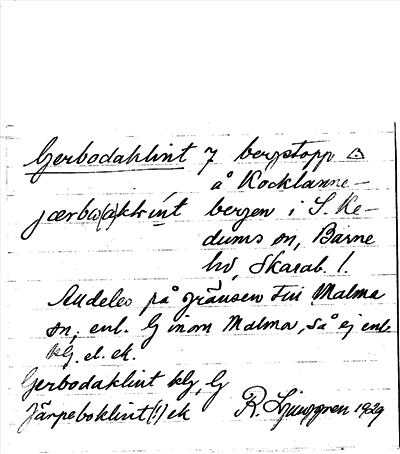 Gerbodaklint 7 bergstopp
å Kocklanne-
jærbω(a)klìnt bergen i S. Ke-
dums sn, Barne
hd, Skarab. l.
Alldeles på gränsen till Malma
sn, enl. G inom Malma, så ej enl.
klg. el. ek.
Gerbodaklint klg, G
Järpeboklint(!) ek R. Ljunggren 1929